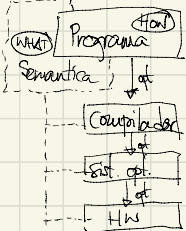 HOW
WHAT Programa
Semantica
opt
Compilador
opt
Sist. opt.
opt
HW